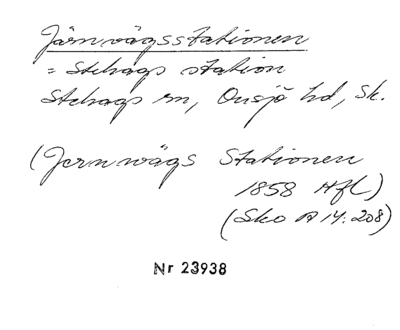 Järnvägsstationen
= Stehags station
Stehags sn, Onsjö hd, Sk.
(Jernwägs Stationen
1858 Hfl)
(Sko A 14:208)
Nr 23938